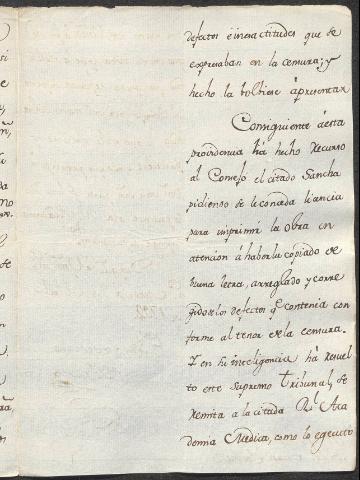 defectos é inexactitudes que se
expresaban en la censura; y
hecho la bolbiese á presentar
Consiguiente á esta
providencia há hecho recurso
al Consejo el citado Sancha
pidiendo se le conceda licencia
para imprimir la obra en
atencion á haberla copiado de
buena letra, arreglado y corre
gidose los defectos qe. contenia con
forme al tenor de la censura.
Y en su inteligencia há resuel
to este Supremo Tribunal, se
remita a la citada Rl. Aca
demia Medica, como lo egecuto